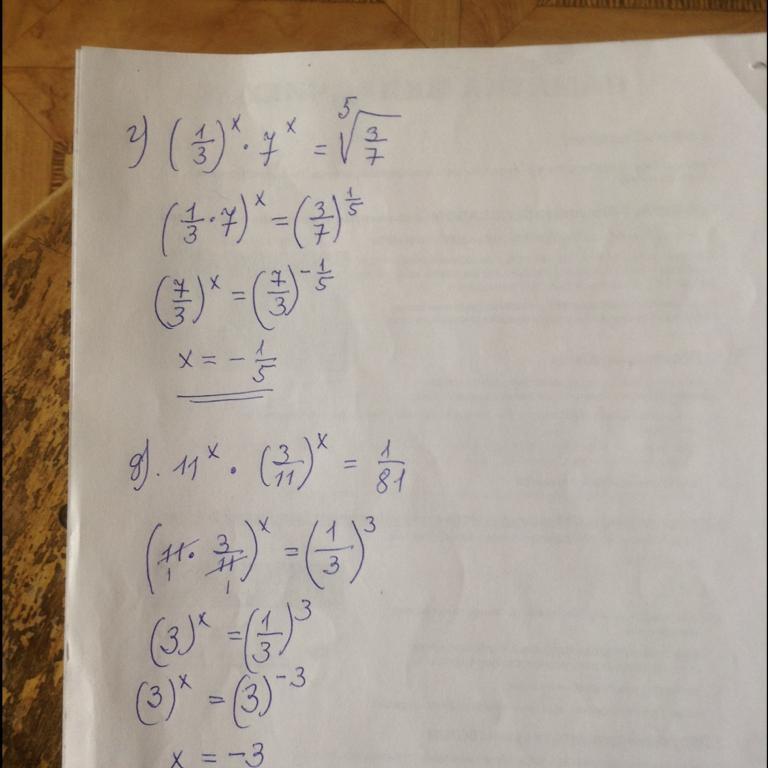 г) (1/3)^x · 7^x = ⁵√(3/7)
(1/3 · 7)^x = (3/7)^(1/5)
(7/3)^x = (7/3)^(-1/5)
x = - 1/5
д). 11^x · (3/11)^x = 1/81
(11 · 3/11)^x = (1/3)^3
1 1
(3)^x = (1/3)^3
(3)^x = (3)^(-3)
x = -3